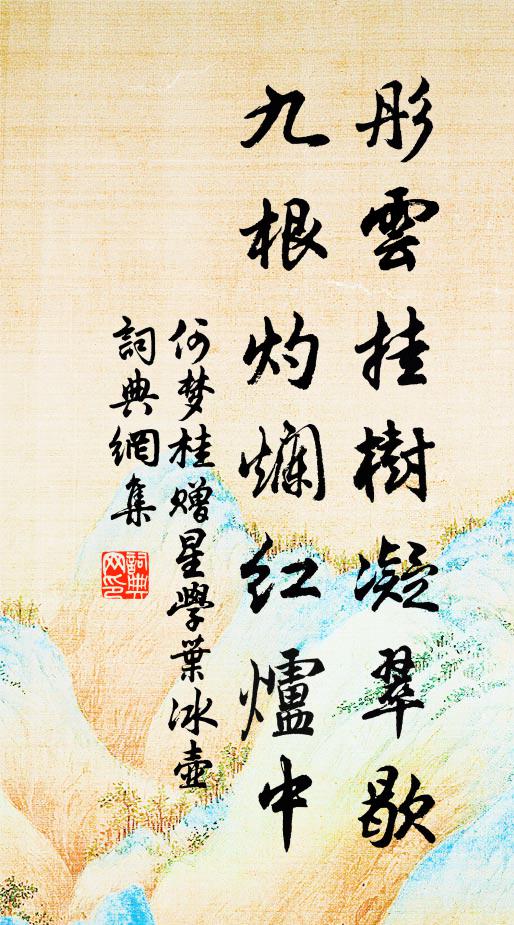 彤雲挂樹凝翠歇
九根灼爛紅爐中
何梦桂贈星學葉冰壺
詞典網集
詞典